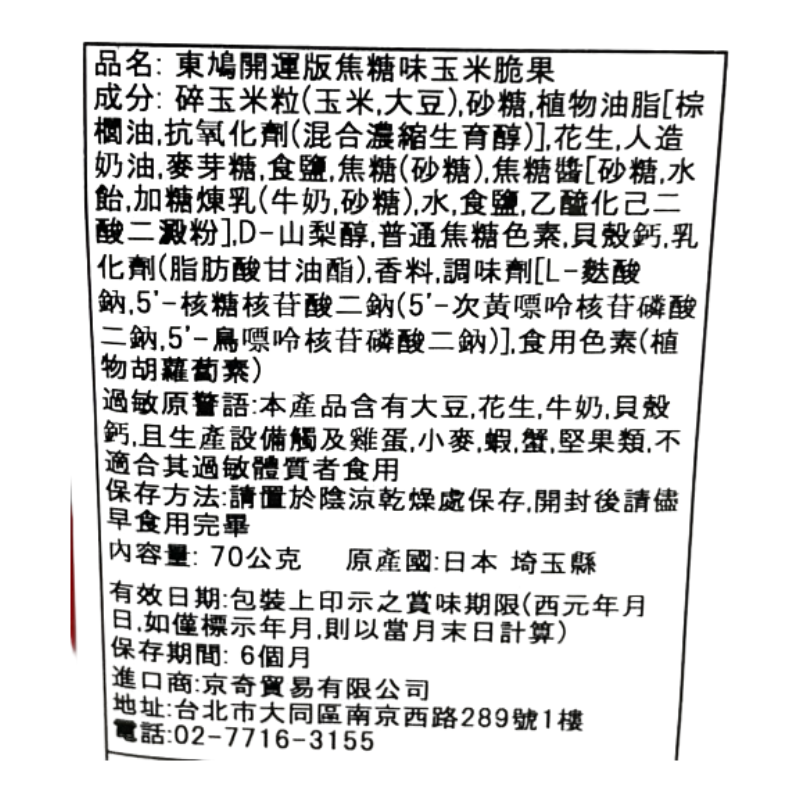 品名: 東鳩開運版焦糖味玉米脆果
成分: 碎玉米粒(玉米,大豆),砂糖,植物油脂[棕
櫚油,抗氧化劑(混合濃縮生育醇)],花生,人造
奶油,麥芽糖,食鹽,焦糖(砂糖),焦糖醬[砂糖,水
飴,加糖煉乳(牛奶,砂糖),水,食鹽,乙醯化己二
酸二澱粉],D-山梨醇,普通焦糖色素,貝殼鈣,乳
化劑(脂肪酸甘油酯),香料,調味劑[L-麩酸
鈉,5'-核糖核苷酸二鈉(5'-次黃嘌呤核苷磷酸
二鈉,5'-鳥嘌呤核苷磷酸二鈉)],食用色素(植
物胡蘿蔔素)
過敏原警語:本產品含有大豆,花生,牛奶,貝殼
鈣,且生產設備觸及雞蛋,小麥,蝦,蟹,堅果類,不
適合其過敏體質者食用
保存方法:請置於陰涼乾燥處保存,開封後請儘
早食用完畢
內容量: 70公克 原產國:日本 埼玉縣
有效日期:包裝上印示之賞味期限(西元年月
日,如僅標示年月,則以當月末日計算)
保存期間: 6個月
進口商:京奇貿易有限公司
地址:台北市大同區南京西路289號1樓
電話:02-7716-3155